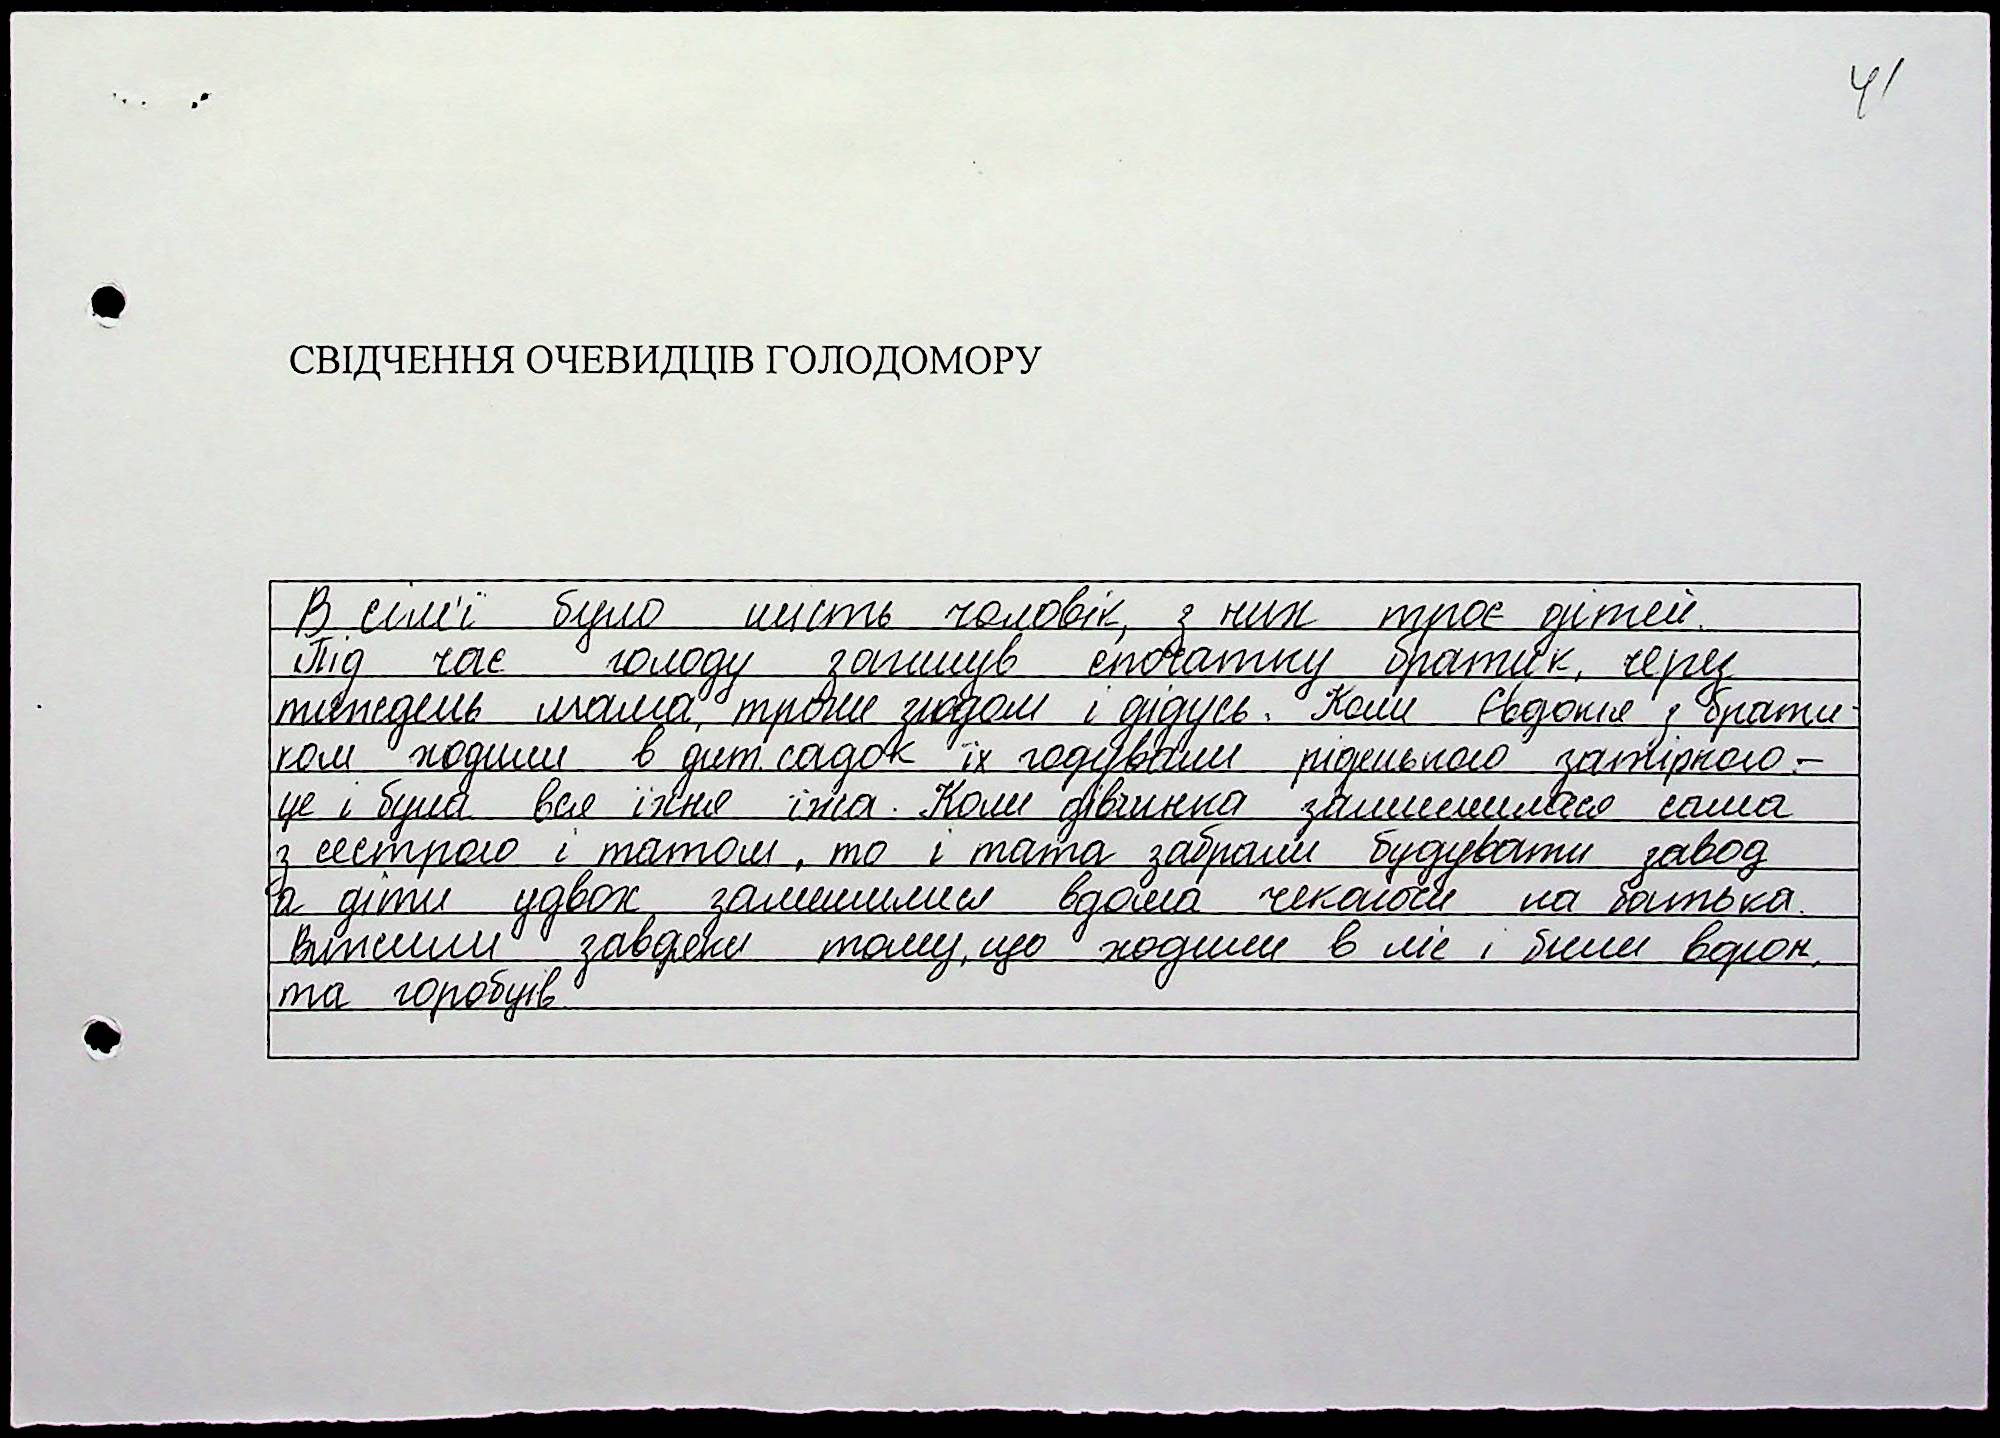 41
СВІДЧЕННЯ ОЧЕВИДЦІВ ГОЛОДОМОРУ
В сім'ї було шість чоловік, з них троє дітей.
Під час голоду загинув спочатку братик, через
тиждень мама, трохи згодом і дідусь. Коли Євдокія з брати-
ком ходили в дит. садок їх годували ріденькою затіркою –
це і була вся їхня їжа. Коли дівчинка залишилася сама
з сестрою і татом, то і тата забрали будувати завод
а діти удвох залишилися вдома чекаючи на батька.
Вижили завдяки тому, що ходили в ліс і били ворон,
та горобців.